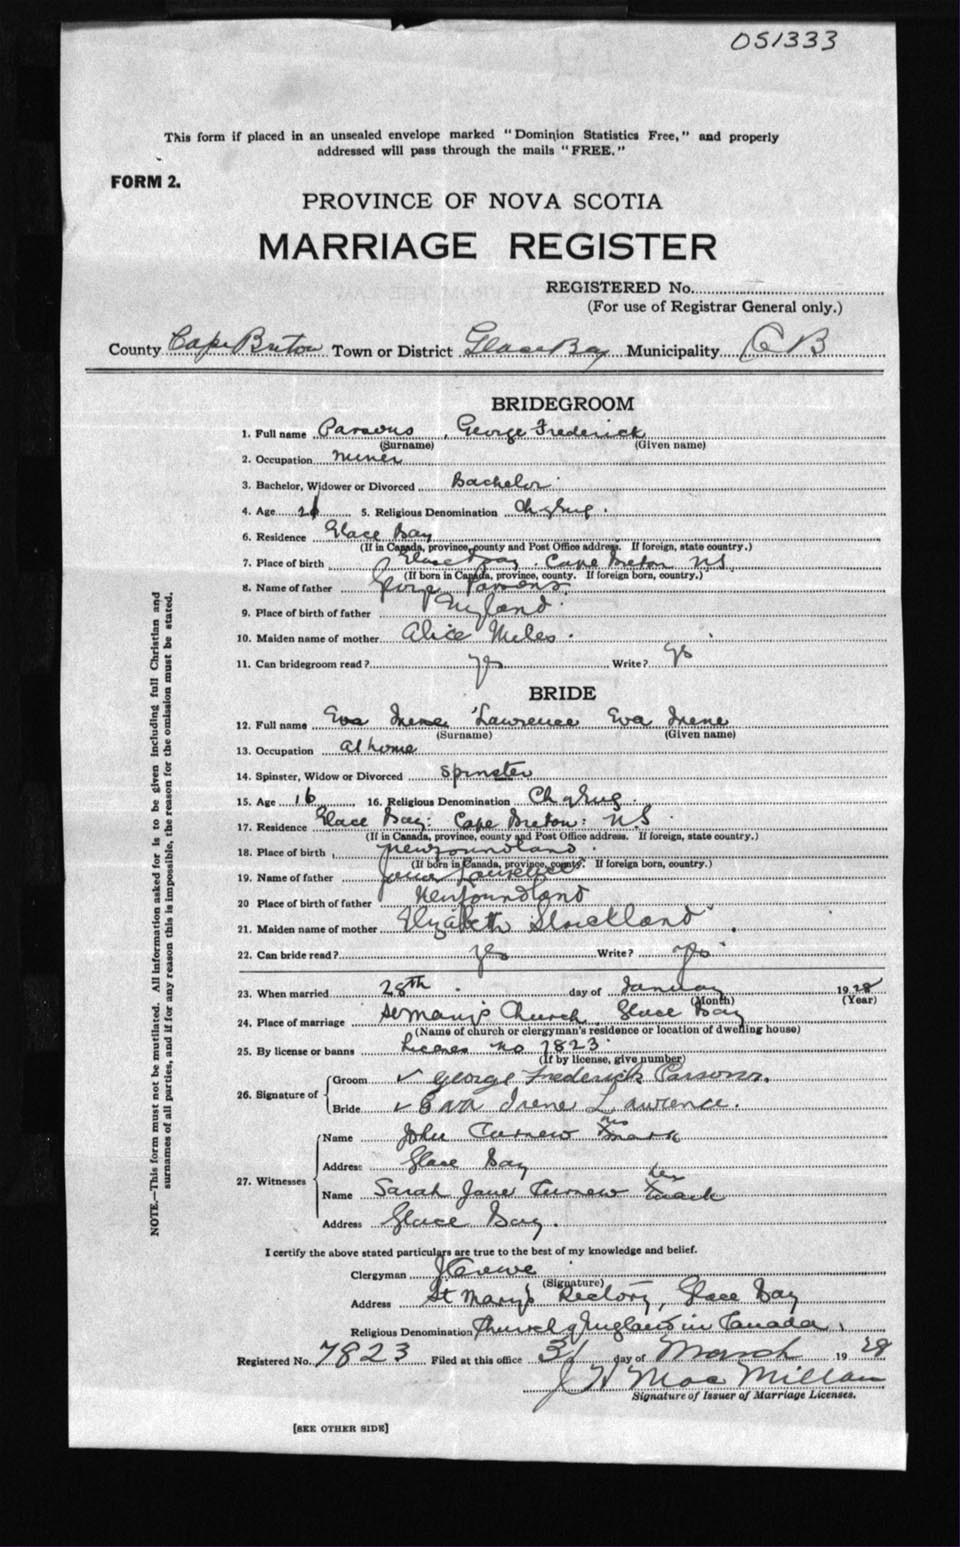 051333
This form if placed in an unsealed envelope marked "Dominion Statistics Free," and properly
addressed will pass through the mails "FREE."
FORM 2.
PROVINCE OF NOVA SCOTIA
MARRIAGE REGISTER
REGISTERED No.
(For use of Registrar General only.)
County Cape Breton Town or District Glace Bay Municipality C B
BRIDEGROOM
1. Full name Parsons, George Frederick
(Surname) (Given name)
2. Occupation miner
3. Bachelor, Widower or Divorced Bachelor
4. Age 21 5. Religious Denomination Ch of Eng.
6. Residence Glace Bay
(If in Canada, province, county and Post Office address. If foreign, state country.)
7. Place of birth Glace Bay. Cape Breton NS.
(If born in Canada, province, county. If foreign born, country.)
8. Name of father George Parsons
9. Place of birth of father England
10. Maiden name of mother Alice Miles
11. Can bridegroom read? yes Write? yes
BRIDE
12. Full name Eva Irene Lawrence Eva Irene
(Surname) (Given name)
13. Occupation at home
14. Spinster, Widow or Divorced spinster
15. Age 16 16. Religious Denomination Ch of Eng.
17. Residence Glace Bay: Cape Breton: NS
(If in Canada, province, county and Post Office address. If foreign, state country.)
18. Place of birth Newfoundland
(If born in Canada, province, county. If foreign born, country.)
19. Name of father Lawrence
20 Place of birth of father Newfoundland
21. Maiden name of mother Elizabeth Strickland
22. Can bride read? yes Write? yes
23. When married 28th day of January 1928
(Month) (Year)
24. Place of marriage St Mary's Church Glace Bay
(Name of church or clergyman's residence or location of dwelling house)
25. By license or banns License No 7823
(If by license, give number)
26. Signature of Groom George Frederick Parsons.
Bride Eva Irene Lawrence.
27. Witnesses
Name John Curnew his x mark
Address Glace Bay
Name Sarah Jane Curnew her x mark
Address Glace Bay.
I certify the above stated particulars are true to the best of my knowledge and belief.
Clergyman
(Signature)
Address St Mary's Rectory, Glace Bay
Religious Denomination Church of England in Canada
Registered No. 7823 Filed at this office 31 day of March 19 28
J H MacMillan
Signature of Issuer of Marriage Licenses.
[SEE OTHER SIDE]
NOTE.—This form must not be mutilated. All information asked for is to be given including full Christian and
surnames of all parties, and if for any reason this is impossible, the reason for the omission must be stated.